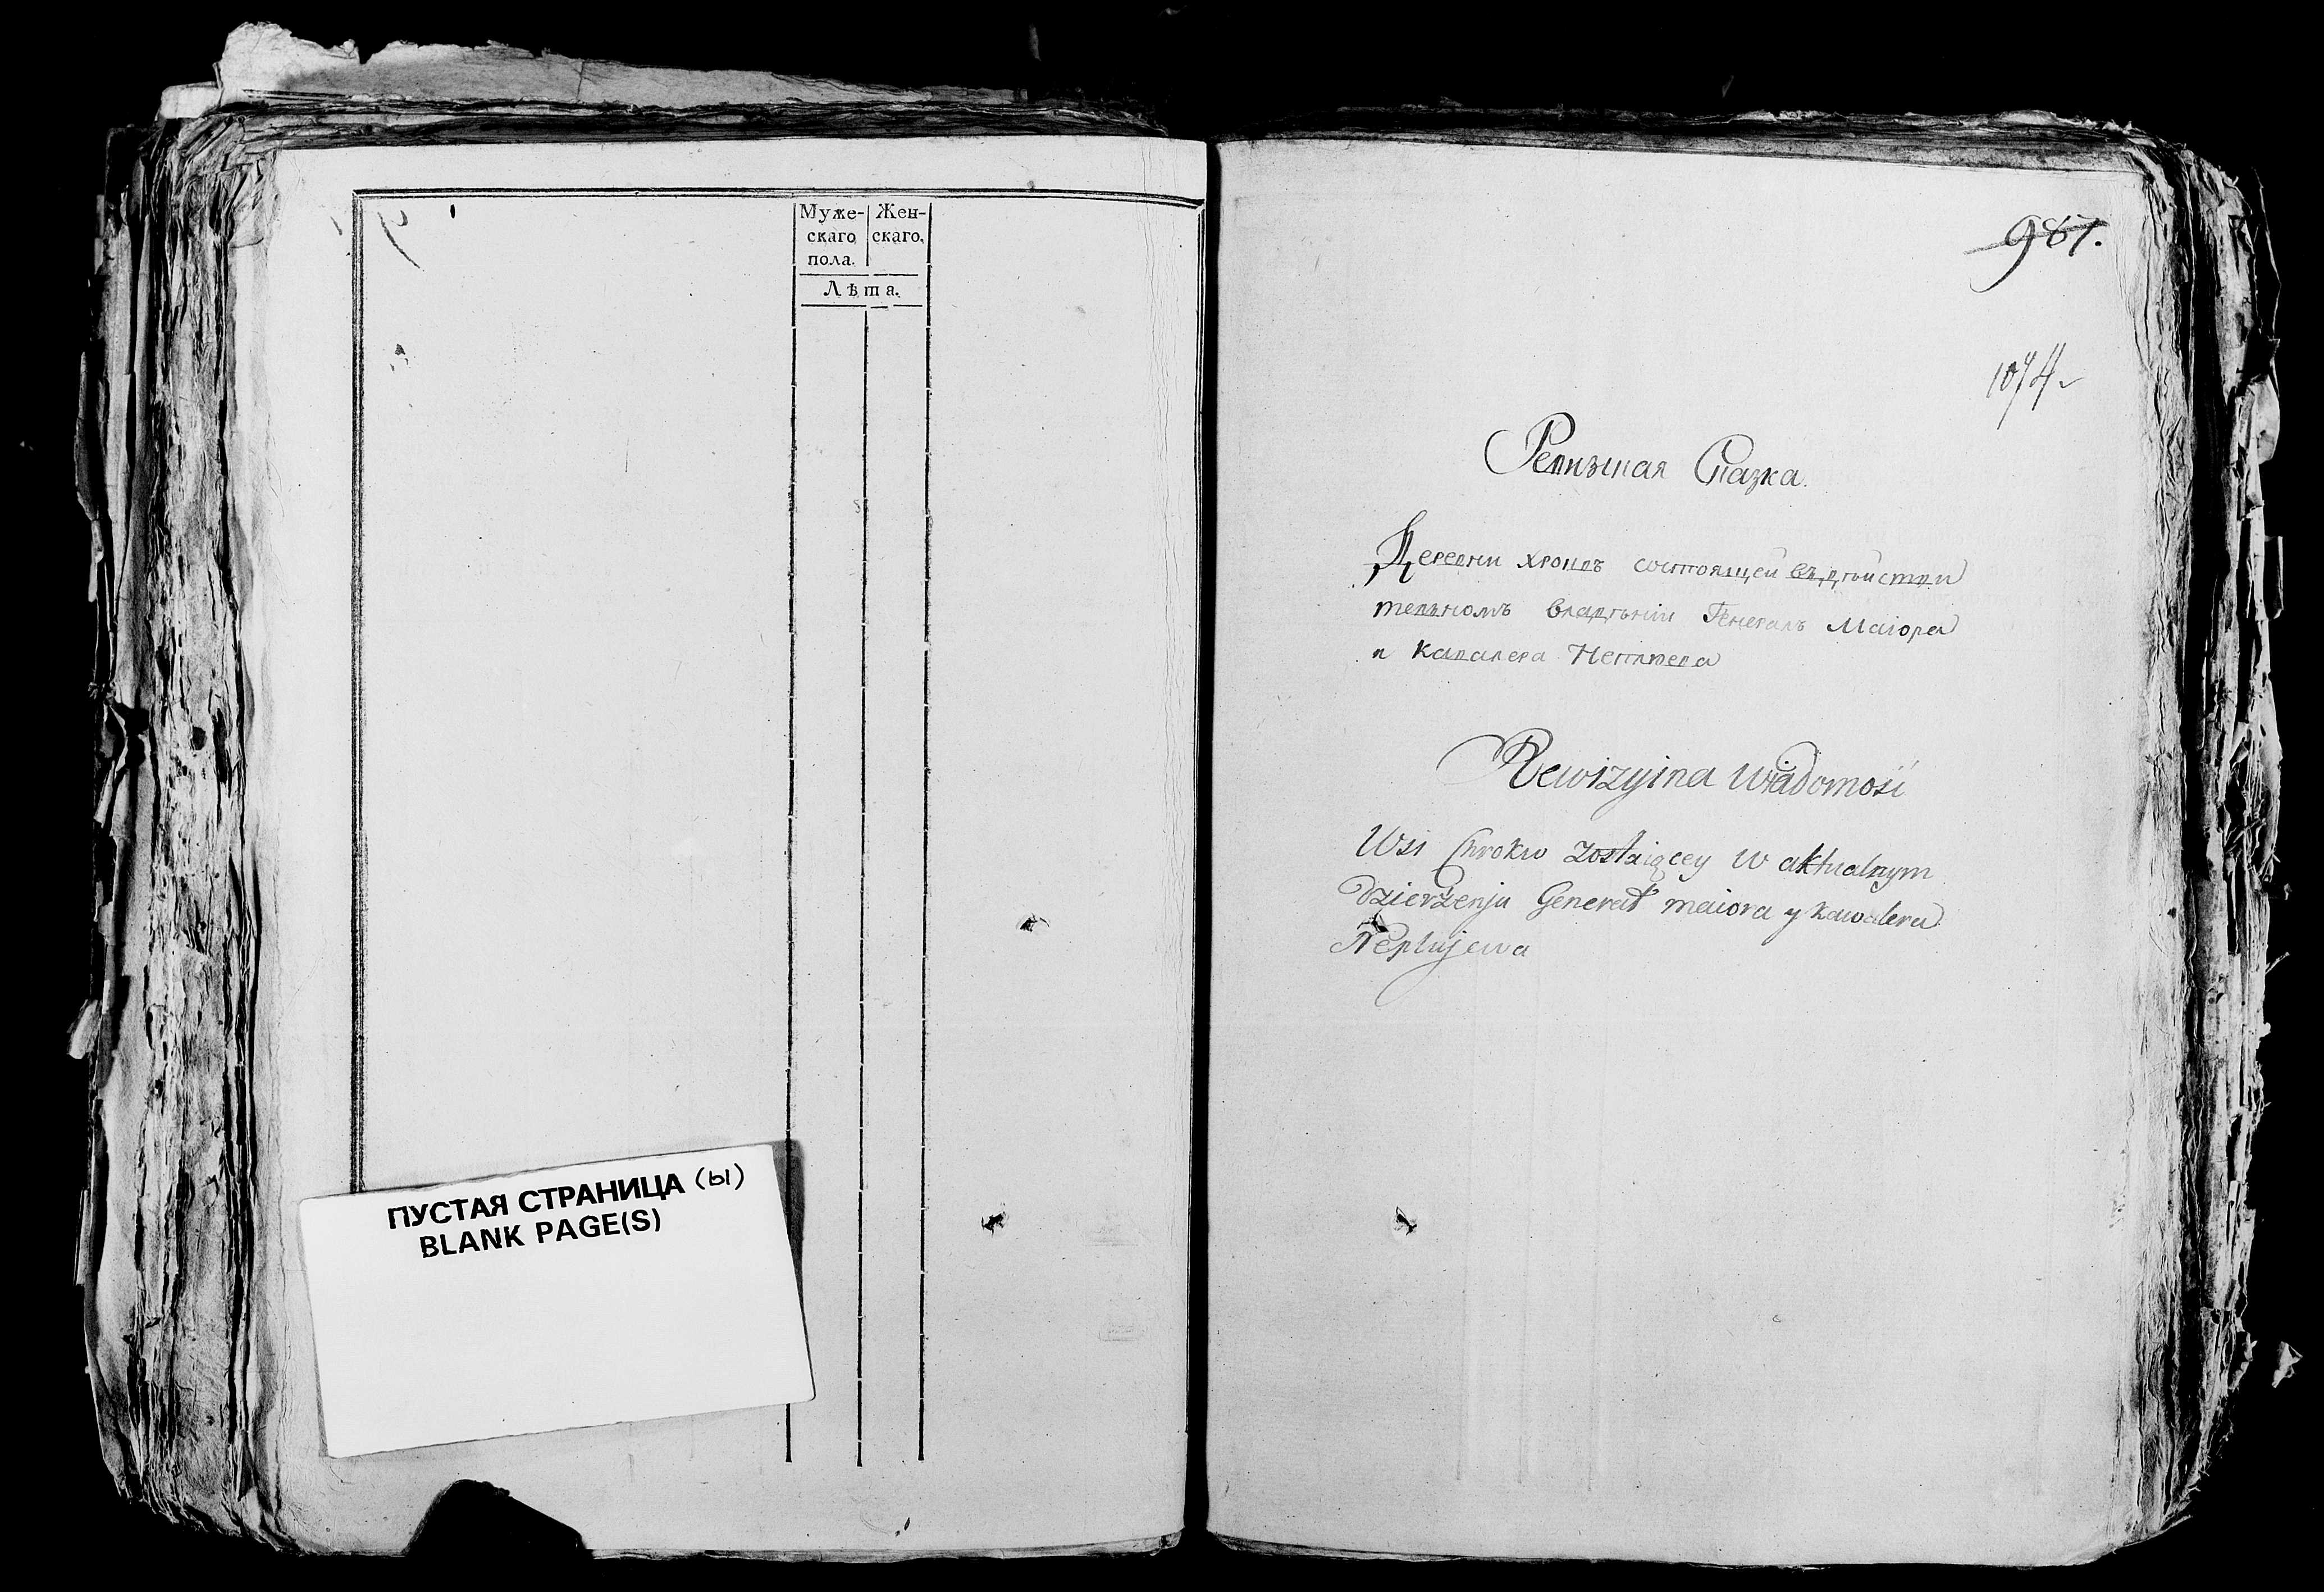 Муже-
скаго
пола.
Жен-
скаго.
Лѣта.
ПУСТАЯ СТРАНИЦА (ы)
BLANK PAGE(S)
987.
1074
Ревизская Сказка.
Деревни хроковъ состоящей въ дѣйстви
тельномъ владѣніи Генералъ Маіора
и кавалера Неплюева
Rewizyina wiadomość
Wsi Chrokw zostaiącey w aktualnym
dzierżenju Generał maiora y kawalera
Neplujewa